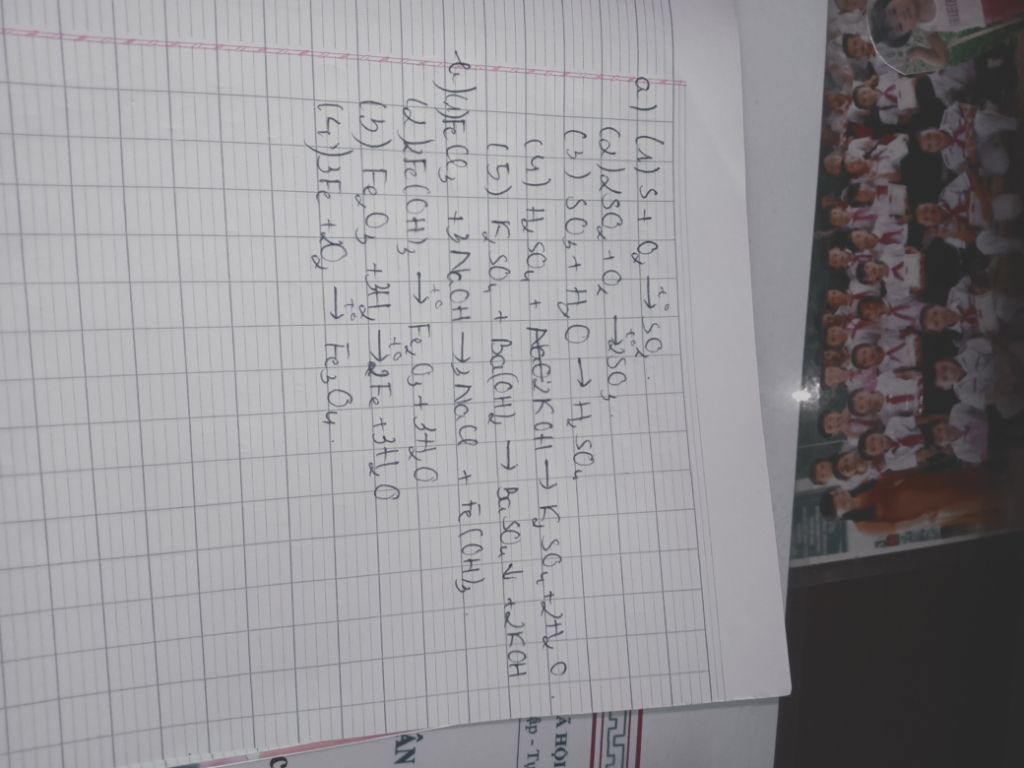 a) (1) S + O₂ →t° SO₂.
(2) 2SO₂ + O₂ →t° 2SO₃.
(3) SO₃ + H₂O → H₂SO₄
(4) H₂SO₄ + 2KOH → K₂SO₄ + 2H₂O.
(5) K₂SO₄ + Ba(OH)₂ → BaSO₄↓ + 2KOH
b) (1) FeCl₃ + 3NaOH → 3NaCl + Fe(OH)₃.
(2) 2Fe(OH)₃ →t° Fe₂O₃ + 3H₂O
(3) Fe₂O₃ + 3H₂ →t° 2Fe + 3H₂O
(4) 3Fe + 2O₂ →t° Fe₃O₄.
ÃHỘI
ập - Tự
ÂN